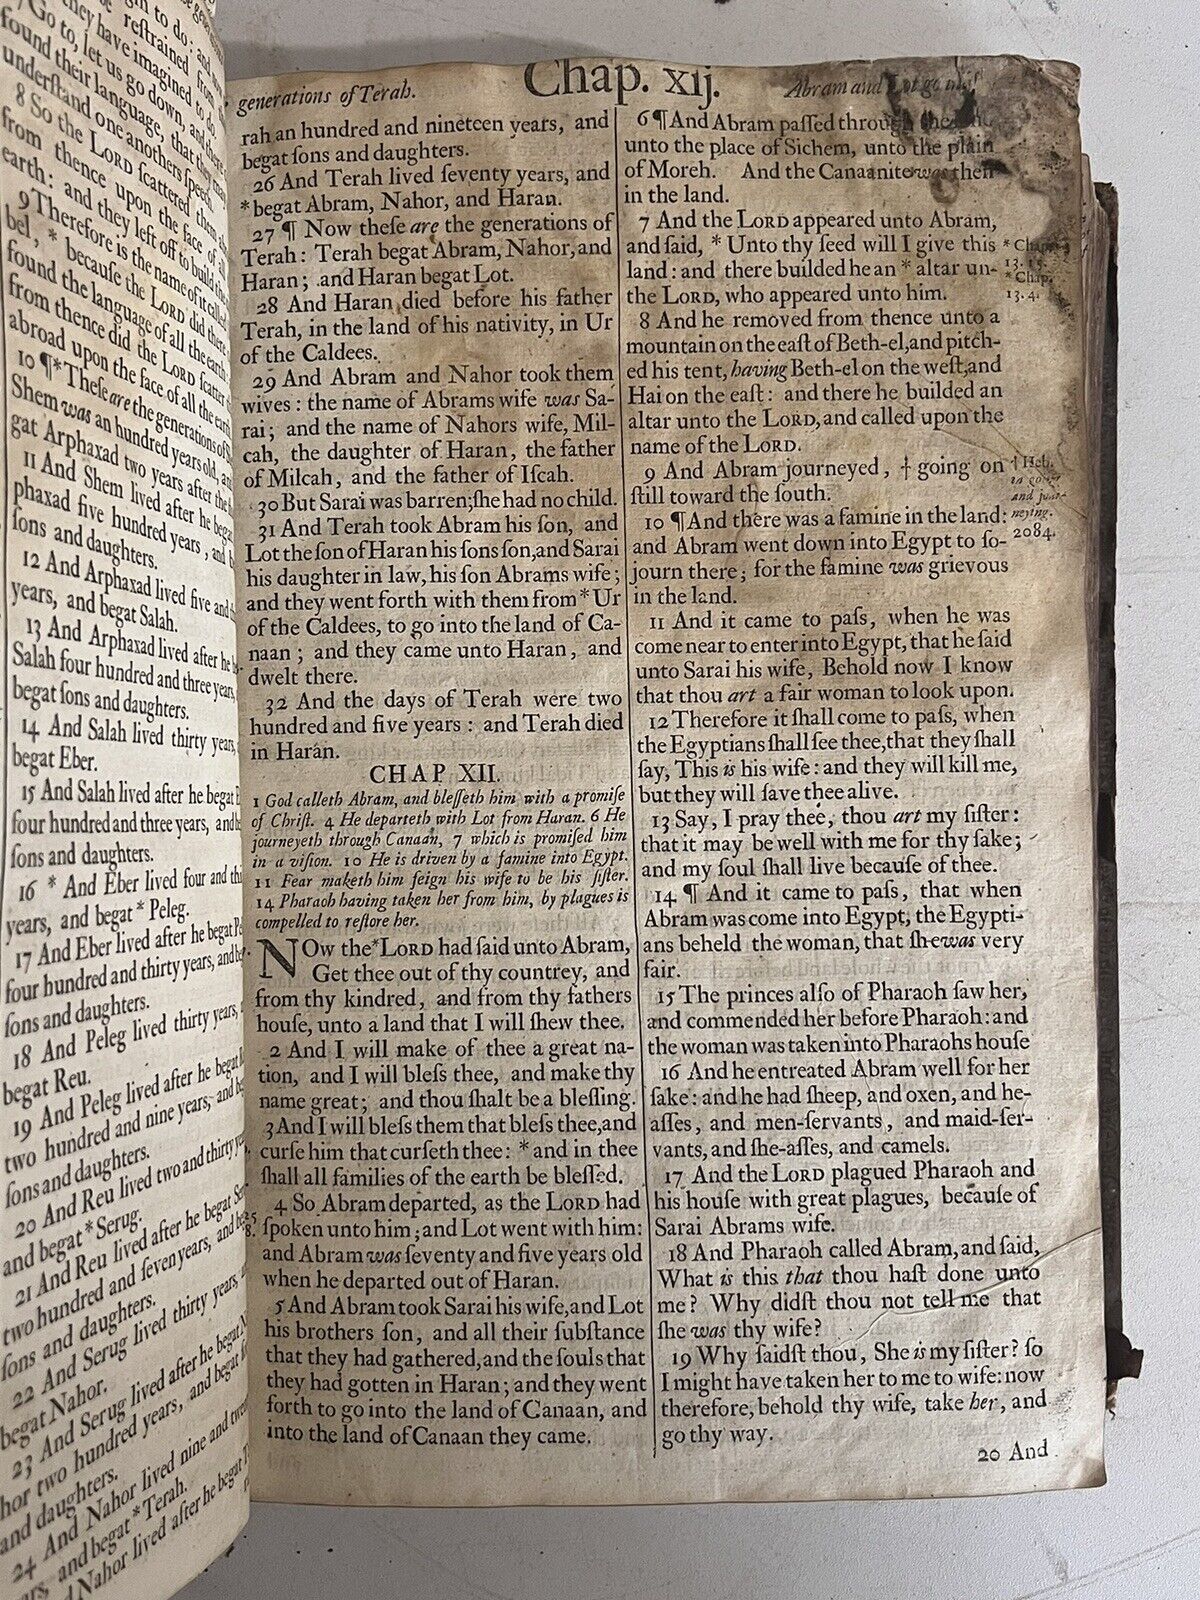 they have imagined to do.
7 Go to, let us go down, and there
found their language, that they may
understand one anothers speech.
8 So the LORD scattered them abroad
from thence upon the face of all
earth: and they left off to build the
9 Therefore is the name of it called
bel, * because the LORD did there
found the language of all the earth:
from thence did the LORD scatter
abroad upon the face of all the earth
10 ¶ * Theſe are the generations of
Shem was an hundred years old, and
gat Arphaxad two years after the
11 And Shem lived after he begat
phaxad five hundred years, and
ſons and daughters.
12 And Arphaxad lived five and
years, and begat Salah.
13 And Arphaxad lived after he
Salah four hundred and three years,
begat ſons and daughters.
14 And Salah lived thirty years,
begat Eber.
15 And Salah lived after he begat
four hundred and three years, and
ſons and daughters.
16 * And Eber lived four and
years, and begat * Peleg.
17 And Eber lived after he begat
four hundred and thirty years, and
ſons and daughters.
18 And Peleg lived thirty years,
begat Reu.
19 And Peleg lived after he begat
two hundred and nine years, and
ſons and daughters.
20 And Reu lived two and thirty
and begat * Serug.
21 And Reu lived after he begat
two hundred and ſeven years, and
ſons and daughters.
22 And Serug lived thirty years,
begat Nahor.
23 And Serug lived after he begat
hor two hundred years, and begat
and daughters.
24 And Nahor lived nine and
and begat * Terah.
Nahor lived after he begat
generations of Terah. Chap. xij. Abram and Lot go
rah an hundred and nineteen years, and
begat ſons and daughters.
26 And Terah lived ſeventy years, and
* begat Abram, Nahor, and Haran.
27 ¶ Now theſe are the generations of
Terah: Terah begat Abram, Nahor, and
Haran; and Haran begat Lot.
28 And Haran died before his father
Terah, in the land of his nativity, in Ur
of the Caldees.
29 And Abram and Nahor took them
wives: the name of Abrams wife was Sa-
rai; and the name of Nahors wife, Mil-
cah, the daughter of Haran, the father
of Milcah, and the father of Iſcah.
30 But Sarai was barren; ſhe had no child.
31 And Terah took Abram his ſon, and
Lot the ſon of Haran his ſons ſon, and Sarai
his daughter in law, his ſon Abrams wife;
and they went forth with them from * Ur
of the Caldees, to go into the land of Ca-
naan; and they came unto Haran, and
dwelt there.
32 And the days of Terah were two
hundred and five years: and Terah died
in Haran.
CHAP XII.
1 God calleth Abram, and bleſſeth him with a promiſe
of Chriſt. 4 He departeth with Lot from Haran. 6 He
journeyeth through Canaan, 7 which is promiſed him
in a viſion. 10 He is driven by a famine into Egypt.
11 Fear maketh him feign his wife to be his ſiſter.
14 Pharaoh having taken her from him, by plagues is
compelled to reſtore her.
NOw the * LORD had ſaid unto Abram,
Get thee out of thy countrey, and
from thy kindred, and from thy fathers
houſe, unto a land that I will ſhew thee.
2 And I will make of thee a great na-
tion, and I will bleſs thee, and make thy
name great; and thou ſhalt be a bleſſing.
3 And I will bleſs them that bleſs thee, and
curſe him that curſeth thee: * and in thee
ſhall all families of the earth be bleſſed.
4 So Abram departed, as the LORD had
ſpoken unto him; and Lot went with him:
and Abram was ſeventy and five years old
when he departed out of Haran.
5 And Abram took Sarai his wife, and Lot
his brothers ſon, and all their ſubſtance
that they had gathered, and the ſouls that
they had gotten in Haran; and they went
forth to go into the land of Canaan, and
into the land of Canaan they came.
6 ¶ And Abram paſſed through
unto the place of Sichem, unto the plain
of Moreh. And the Canaanite was then
in the land.
7 And the LORD appeared unto Abram,
and ſaid, * Unto thy ſeed will I give this
land: and there builded he an * altar un-
the LORD, who appeared unto him.
8 And he removed from thence unto a
mountain on the eaſt of Beth-el, and pitch-
ed his tent, having Beth-el on the weſt, and
Hai on the eaſt: and there he builded an
altar unto the LORD, and called upon the
name of the LORD.
9 And Abram journeyed, † going on
ſtill toward the ſouth.
10 ¶ And there was a famine in the land:
and Abram went down into Egypt to ſo-
journ there; for the famine was grievous
in the land.
11 And it came to paſs, when he was
come near to enter into Egypt, that he ſaid
unto Sarai his wife, Behold now I know
that thou art a fair woman to look upon.
12 Therefore it ſhall come to paſs, when
the Egyptians ſhall ſee thee, that they ſhall
ſay, This is his wife: and they will kill me,
but they will ſave thee alive.
13 Say, I pray thee, thou art my ſiſter:
that it may be well with me for thy ſake;
and my ſoul ſhall live becauſe of thee.
14 ¶ And it came to paſs, that when
Abram was come into Egypt, the Egypti-
ans beheld the woman, that ſhe was very
fair.
15 The princes alſo of Pharaoh ſaw her,
and commended her before Pharaoh: and
the woman was taken into Pharaohs houſe
16 And he entreated Abram well for her
ſake: and he had ſheep, and oxen, and he-
aſſes, and men-ſervants, and maid-ſer-
vants, and ſhe-aſſes, and camels.
17 And the LORD plagued Pharaoh and
his houſe with great plagues, becauſe of
Sarai Abrams wife.
18 And Pharaoh called Abram, and ſaid,
What is this that thou haſt done unto
me? Why didſt thou not tell me that
ſhe was thy wife?
19 Why ſaidſt thou, She is my ſiſter? ſo
I might have taken her to me to wife: now
therefore, behold thy wife, take her, and
go thy way.
20 And
* Chap.
13. 15.
* Chap.
13. 4.
† Heb.
in going
and jour-
neying.
2084.